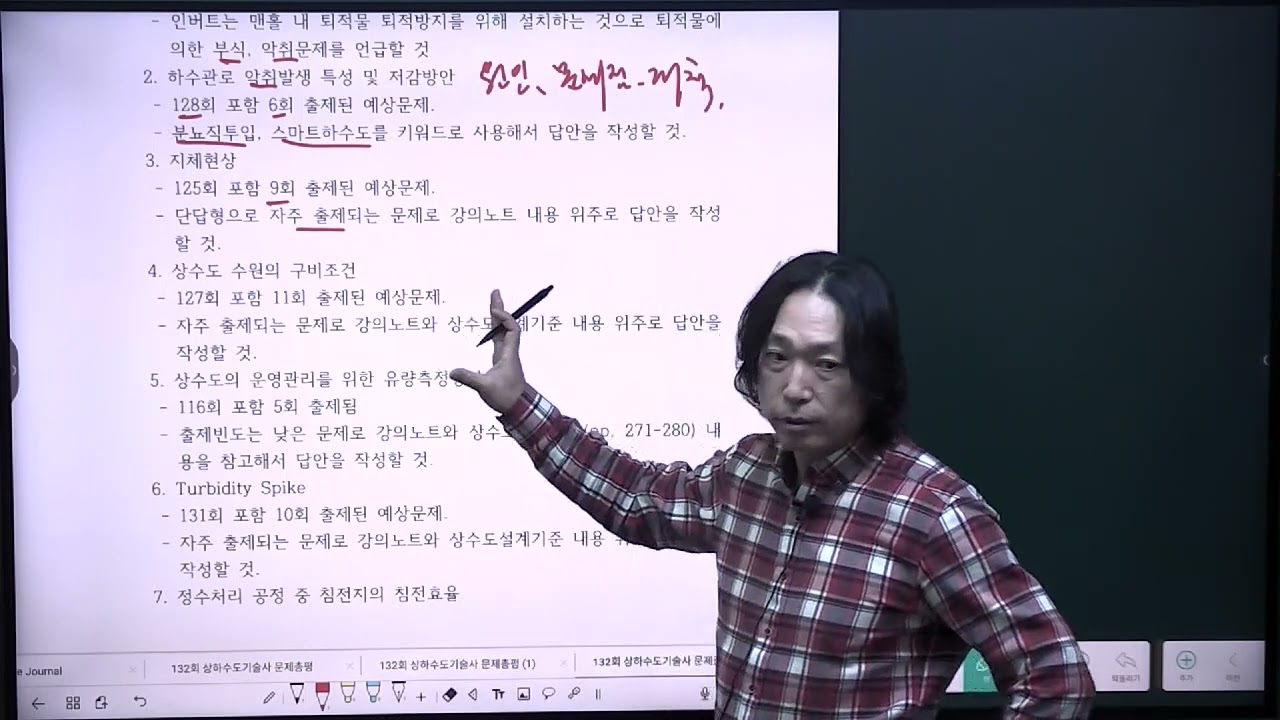 - 인버트는 맨홀 내 퇴적물 퇴적방지를 위해 설치하는 것으로 퇴적물에
의한 부식, 악취문제를 언급할 것
2. 하수관로 악취발생 특성 및 저감방안 원인、문제점-대책.
- 128회 포함 6회 출제된 예상문제.
- 분뇨직투입, 스마트하수도를 키워드로 사용해서 답안을 작성할 것.
3. 지체현상
- 125회 포함 9회 출제된 예상문제.
- 단답형으로 자주 출제되는 문제로 강의노트 내용 위주로 답안을 작성
할 것.
4. 상수도 수원의 구비조건
- 127회 포함 11회 출제된 예상문제.
- 자주 출제되는 문제로 강의노트와 상수도 내용 위주로 답안을
작성할 것.
5. 상수도의 운영관리를 위한 유량측정
- 116회 포함 5회 출제됨
- 출제빈도는 낮은 문제로 강의노트와 271-280) 내
용을 참고해서 답안을 작성할 것.
6. Turbidity Spike
- 131회 포함 10회 출제된 예상문제.
- 자주 출제되는 문제로 강의노트와 상수도설계기준 내용
작성할 것.
7. 정수처리 공정 중 침전지의 침전효율
Journal 132회 상하수도기술사 문제총평 132회 상하수도기술사 문제총평 (1) 132회 상하수도기술사
Tr 되돌리기 추가 이전